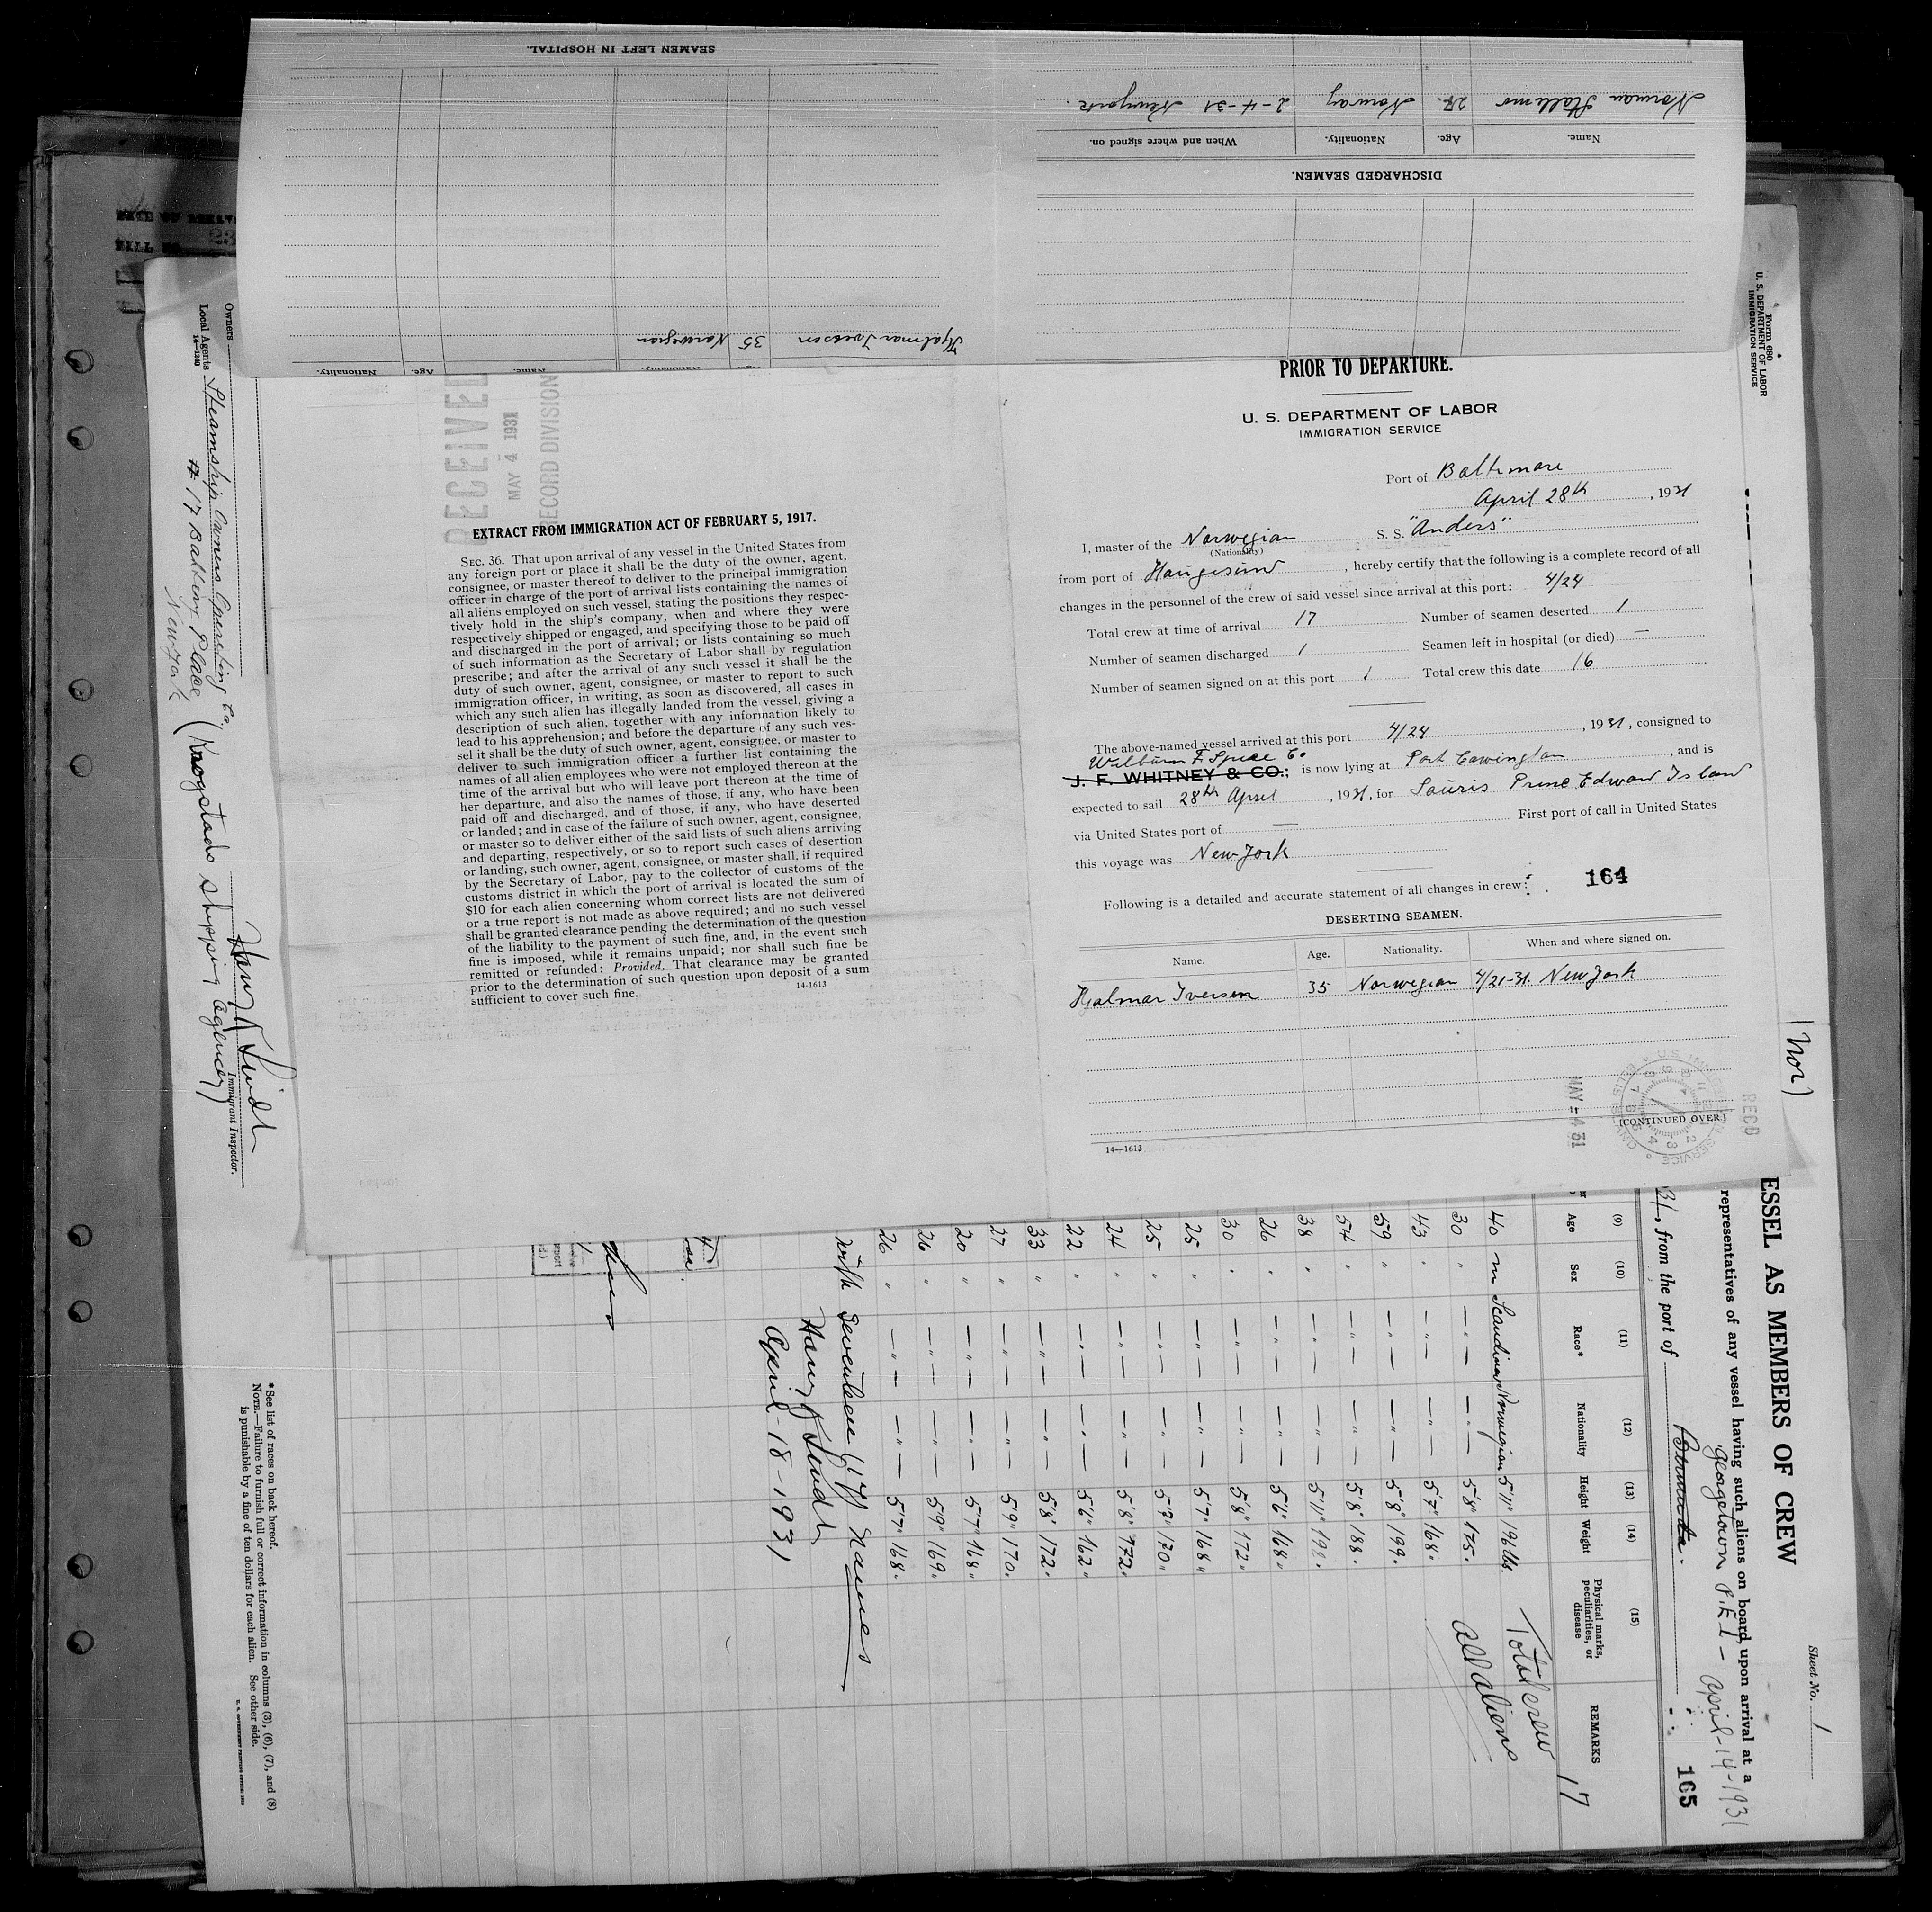 SEAMEN LEFT IN HOSPITAL.
Norman 27 Norway 2-4-31 Newyork.
Name. Age. Nationality. When and where signed on.
DISCHARGED SEAMEN.
Hjalmar Iversen 35 Norwegian
Name. Age. Nationality.
PRIOR TO DEPARTURE.
U. S. DEPARTMENT OF LABOR
IMMIGRATION SERVICE
Port of Baltimore
April 28th, 1931
I, master of the Norwegian S. S. "Anders"
(Nationality)
from port of Haugesund, hereby certify that the following is a complete record of all
changes in the personnel of the crew of said vessel since arrival at this port: 4/24
Total crew at time of arrival 17 Number of seamen deserted 1
Number of seamen discharged 1 Seamen left in hospital (or died) —
Number of seamen signed on at this port 1 Total crew this date 16
The above-named vessel arrived at this port 4/24, 1931, consigned to
Wilburn F Spice Co
J. F. WHITNEY & CO.; is now lying at Port Covington, and is
expected to sail 28th April, 1931, for Souris Prince Edward Island
via United States port of — First port of call in United States
this voyage was New York
Following is a detailed and accurate statement of all changes in crew:
164
DESERTING SEAMEN.
Name. Age. Nationality. When and where signed on.
Hjalmar Iversen 35 Norwegian 4/21-31. New York
(CONTINUED OVER)
14—1613
MAY -4 31
RECD
RECEIVED
MAY 4 1931
RECORD DIVISION
EXTRACT FROM IMMIGRATION ACT OF FEBRUARY 5, 1917.
SEC. 36. That upon arrival of any vessel in the United States from
any foreign port or place it shall be the duty of the owner, agent,
consignee, or master thereof to deliver to the principal immigration
officer in charge of the port of arrival lists containing the names of
all aliens employed on such vessel, stating the positions they respec-
tively hold in the ship's company, when and where they were
respectively shipped or engaged, and specifying those to be paid off
and discharged in the port of arrival; or lists containing so much
of such information as the Secretary of Labor shall by regulation
prescribe; and after the arrival of any such vessel it shall be the
duty of such owner, agent, consignee, or master to report to such
immigration officer, in writing, as soon as discovered, all cases in
which any such alien has illegally landed from the vessel, giving a
description of such alien, together with any information likely to
lead to his apprehension; and before the departure of any such ves-
sel it shall be the duty of such owner, agent, consignee, or master to
deliver to such immigration officer a further list containing the
names of all alien employees who were not employed thereon at the
time of the arrival but who will leave port thereon at the time of
her departure, and also the names of those, if any, who have been
paid off and discharged, and of those, if any, who have deserted
or landed; and in case of the failure of such owner, agent, consignee,
or master so to deliver either of the said lists of such aliens arriving
and departing, respectively, or so to report such cases of desertion
or landing, such owner, agent, consignee, or master shall, if required
by the Secretary of Labor, pay to the collector of customs of the
customs district in which the port of arrival is located the sum of
$10 for each alien concerning whom correct lists are not delivered
or a true report is not made as above required; and no such vessel
shall be granted clearance pending the determination of the question
of the liability to the payment of such fine, and, in the event such
fine is imposed, while it remains unpaid; nor shall such fine be
remitted or refunded: Provided, That clearance may be granted
prior to the determination of such question upon deposit of a sum
sufficient to cover such fine.
14-1613
Form 680
U. S. DEPARTMENT OF LABOR
IMMIGRATION SERVICE
(Nor)
Sheet No. 1
ESSEL AS MEMBERS OF CREW
representatives of any vessel having such aliens on board upon arrival at a
Georgetown P.E.I - April-14-1931
31, from the port of Bermuda.
165
(9) (10) (11) (12) (13) (14) (15)
Age Sex Race* Nationality Height Weight Physical marks, peculiarities, or disease REMARKS
17
40 m Scandinav Norwegian 5'11" 196 lbs.
30 " — " — — " — 5'8" 175 "
43 " — " — — " — 5'7" 168 "
59 " — " — — " — 5'8" 199 "
54 " — " — — " — 5'8" 188 "
38 " — " — — " — 5'11" 198 "
26 " — " — — " — 5'6" 168 "
30 " — " — — " — 5'8" 172 "
25 " — " — — " — 5'7" 168 "
25 " — " — — " — 5'7" 170 "
24 " — " — — " — 5'8" 172 "
22 " — " — — " — 5'6" 162 "
33 " — " — — " — 5'8" 172 "
27 " — " — — " — 5'9" 170 "
20 " — " — — " — 5'7" 168 "
26 " — " — — " — 5'9" 169 "
26 " — " — — " — 5'7" 168 "
Total crew
all aliens
with seventeen (17) names
April-18-1931
Immigrant Inspector.
Owners
Local Agents Steamship Owners Operating Co.
14—1240
# 17 Battery Place, (Knogstads Shipping Agency)
New-York
*See list of races on back hereof.
NOTE.—Failure to furnish full or correct information in columns (3), (6), (7), and (8)
is punishable by a fine of ten dollars for each alien. See other side.